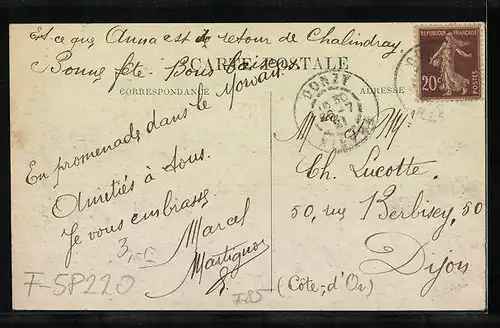 Est ce que Anna est de retour de Chalindray.
CARTE POSTALE
Bonne fête. Bons baisers.
CORRESPONDANCE
ADRESSE
REPUBLIQUE FRANÇAISE
20c
DONZY
NIEVRE
En promenade dans le Morvan.
Amitiés à tous.
Je vous embrasse
Marcel
Martignon
M. Me
Ch. Lucotte
50, rue Berbisey, 50
Dijon
(Côte-d'Or)
3,-
F-58220
F85